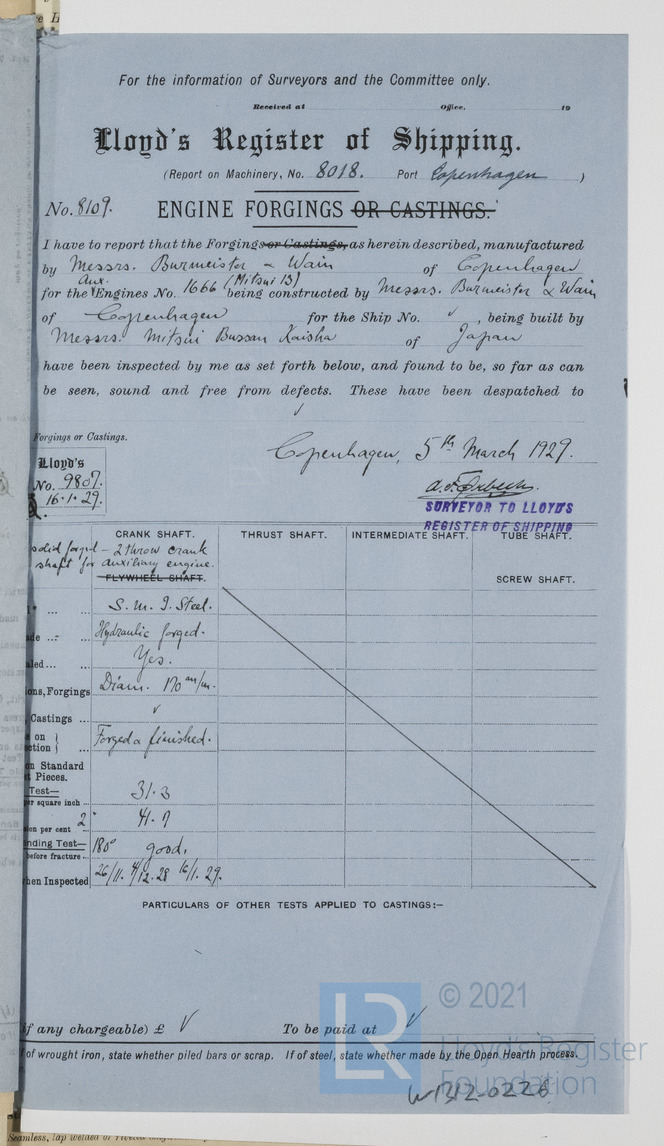 For the information of Surveyors and the Committee only.
Received at Office, 19
Lloyd's Register of Shipping.
(Report on Machinery, No. 8018. Port Copenhagen )
No. 8109. ENGINE FORGINGS OR CASTINGS.
I have to report that the Forgings or Castings, as herein described, manufactured
by Messrs. Burmeister & Wain of Copenhagen
for the Aux. Engines No. 1666 (Mitsui 13) being constructed by Messrs. Burmeister & Wain
of Copenhagen for the Ship No. ✓, being built by
Messrs. Mitsui Bussan Kaisha of Japan
have been inspected by me as set forth below, and found to be, so far as can
be seen, sound and free from defects. These have been despatched to
✓
Forgings or Castings.
Copenhagen, 5th March 1929.
Lloyd's
No. 9807.
16.1.29.
SURVEYOR TO LLOYD'S
REGISTER OF SHIPPING
CRANK SHAFT. THRUST SHAFT. INTERMEDIATE SHAFT. TUBE SHAFT.
solid forged - 2 throw crank
shaft for auxiliary engine.
FLYWHEEL SHAFT. SCREW SHAFT.
... ... S. M. I. Steel.
... ... Hydraulic forged.
... ... Yes.
ons, Forgings Diam. 170 m/m.
Castings ... ✓
on
ction ... Forged & finished.
n Standard
t Pieces.
Test—
er square inch ... 31.3
2" 41.7
ion per cent
nding Test— 180° good.
before fracture ...
hen Inspected 26/11. 4/12.28 16/1.29.
PARTICULARS OF OTHER TESTS APPLIED TO CASTINGS:—
if any chargeable) £ ✓ To be paid at ✓
of wrought iron, state whether piled bars or scrap. If of steel, state whether made by the Open Hearth process.
© 2021
LR
Lloyd's Register
Foundation
W1312-0226
Seamless, lap welded or